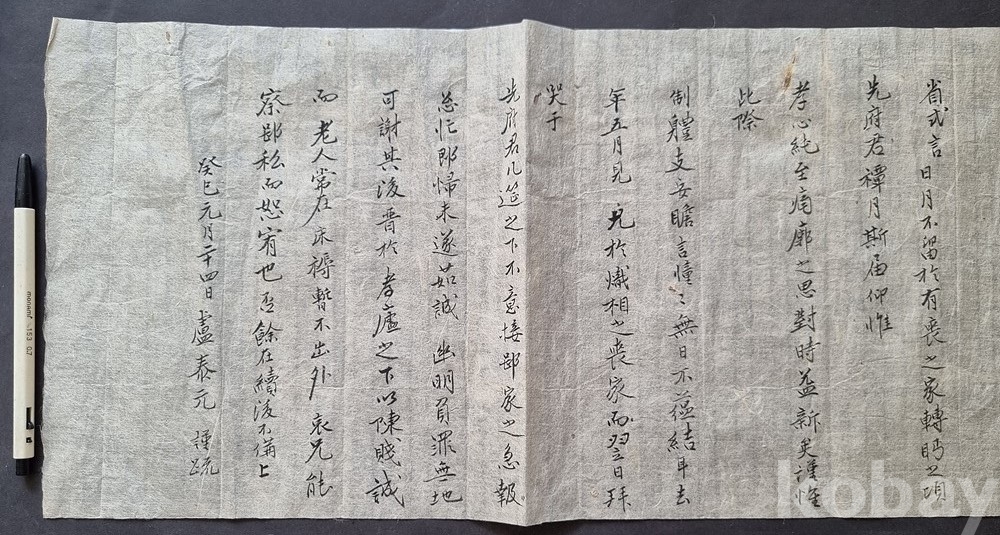 省式言日月不留於有喪之家轉眄之頃
先府君禫月斯届仰惟
孝心純至痛廓之思對時益新矣謹惟
比際
制軆支安瞻言憧〻無日不蘊結耳去
年五月見 兄於熾相之喪家而翌日拜
哭于
先府君几筵之下不意接鄙家之急報
忩忙即歸未遂茹誠 幽明負罪無地
可謝其後晋於 孝廬之下以陳賤誠
而 老人常在床褥暫不出外 哀兄能
察鄙私而恕宥也否餘在續後不備上
癸巳元月二十四日 盧泰元 謹疏
monami 153 0.7
kobay